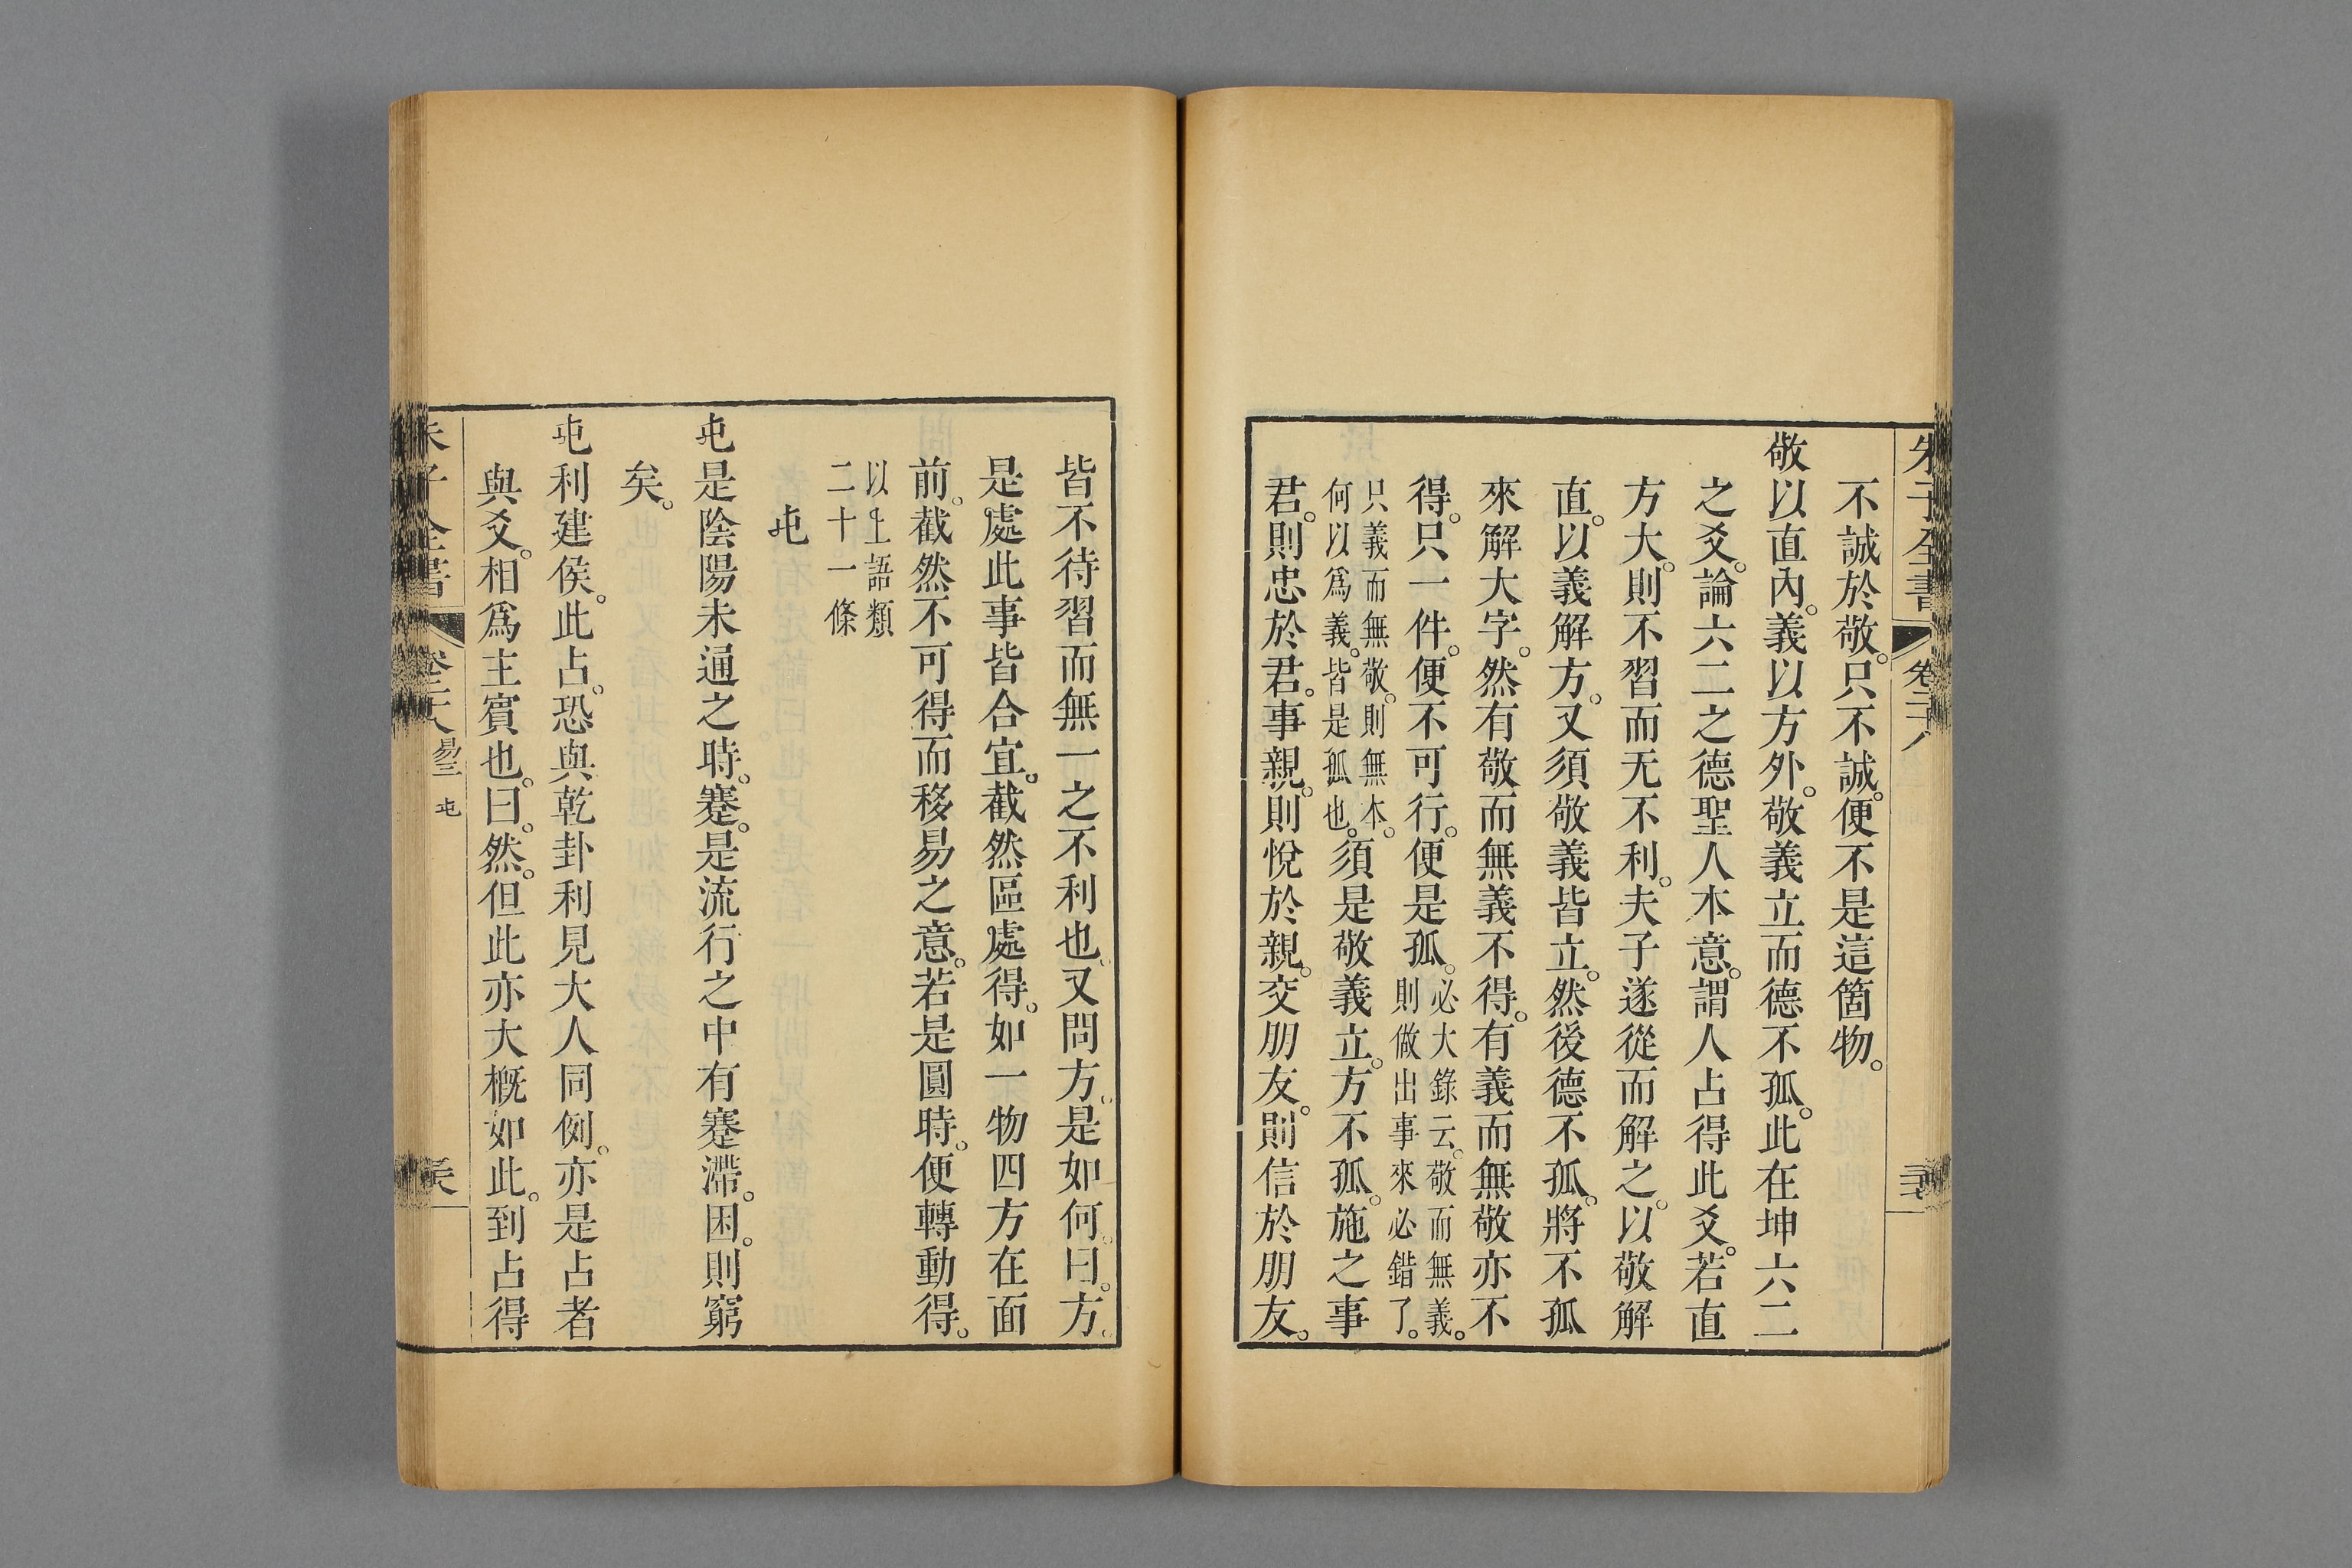 朱子全書 卷二十八
不誠於敬。只不誠。便不是這箇物。
敬以直內。義以方外。敬義立而德不孤。此在坤六二
之爻。論六二之德聖人本意。謂人占得此爻。若直
方大。則不習而无不利。夫子遂從而解之。以敬解
直。以義解方。又須敬義皆立。然後德不孤。將不孤
來解大字。然有敬而無義不得。有義而無敬亦不
得。只一件。便不可行。便是孤。必大錄云。敬而無義。則做出事來必錯了。
只義而無敬。則無本。何以爲義。皆是孤也。須是敬義立。方不孤。施之事
君。則忠於君。事親。則悅於親。交朋友。則信於朋友。
皆不待習而無一之不利也。又問方。是如何。曰。方。
是處此事皆合宜。截然區處得。如一物四方在面
前。截然不可得而移易之意。若是圓時。便轉動得。
以上語類
二十一條
屯
屯是陰陽未通之時。蹇。是流行之中有蹇滯。困。則窮
矣。
屯利建侯。此占。恐與乾卦利見大人同例。亦是占者
與爻。相爲主賓也。曰。然。但此亦大槪如此。到占得
子全書 易三 屯